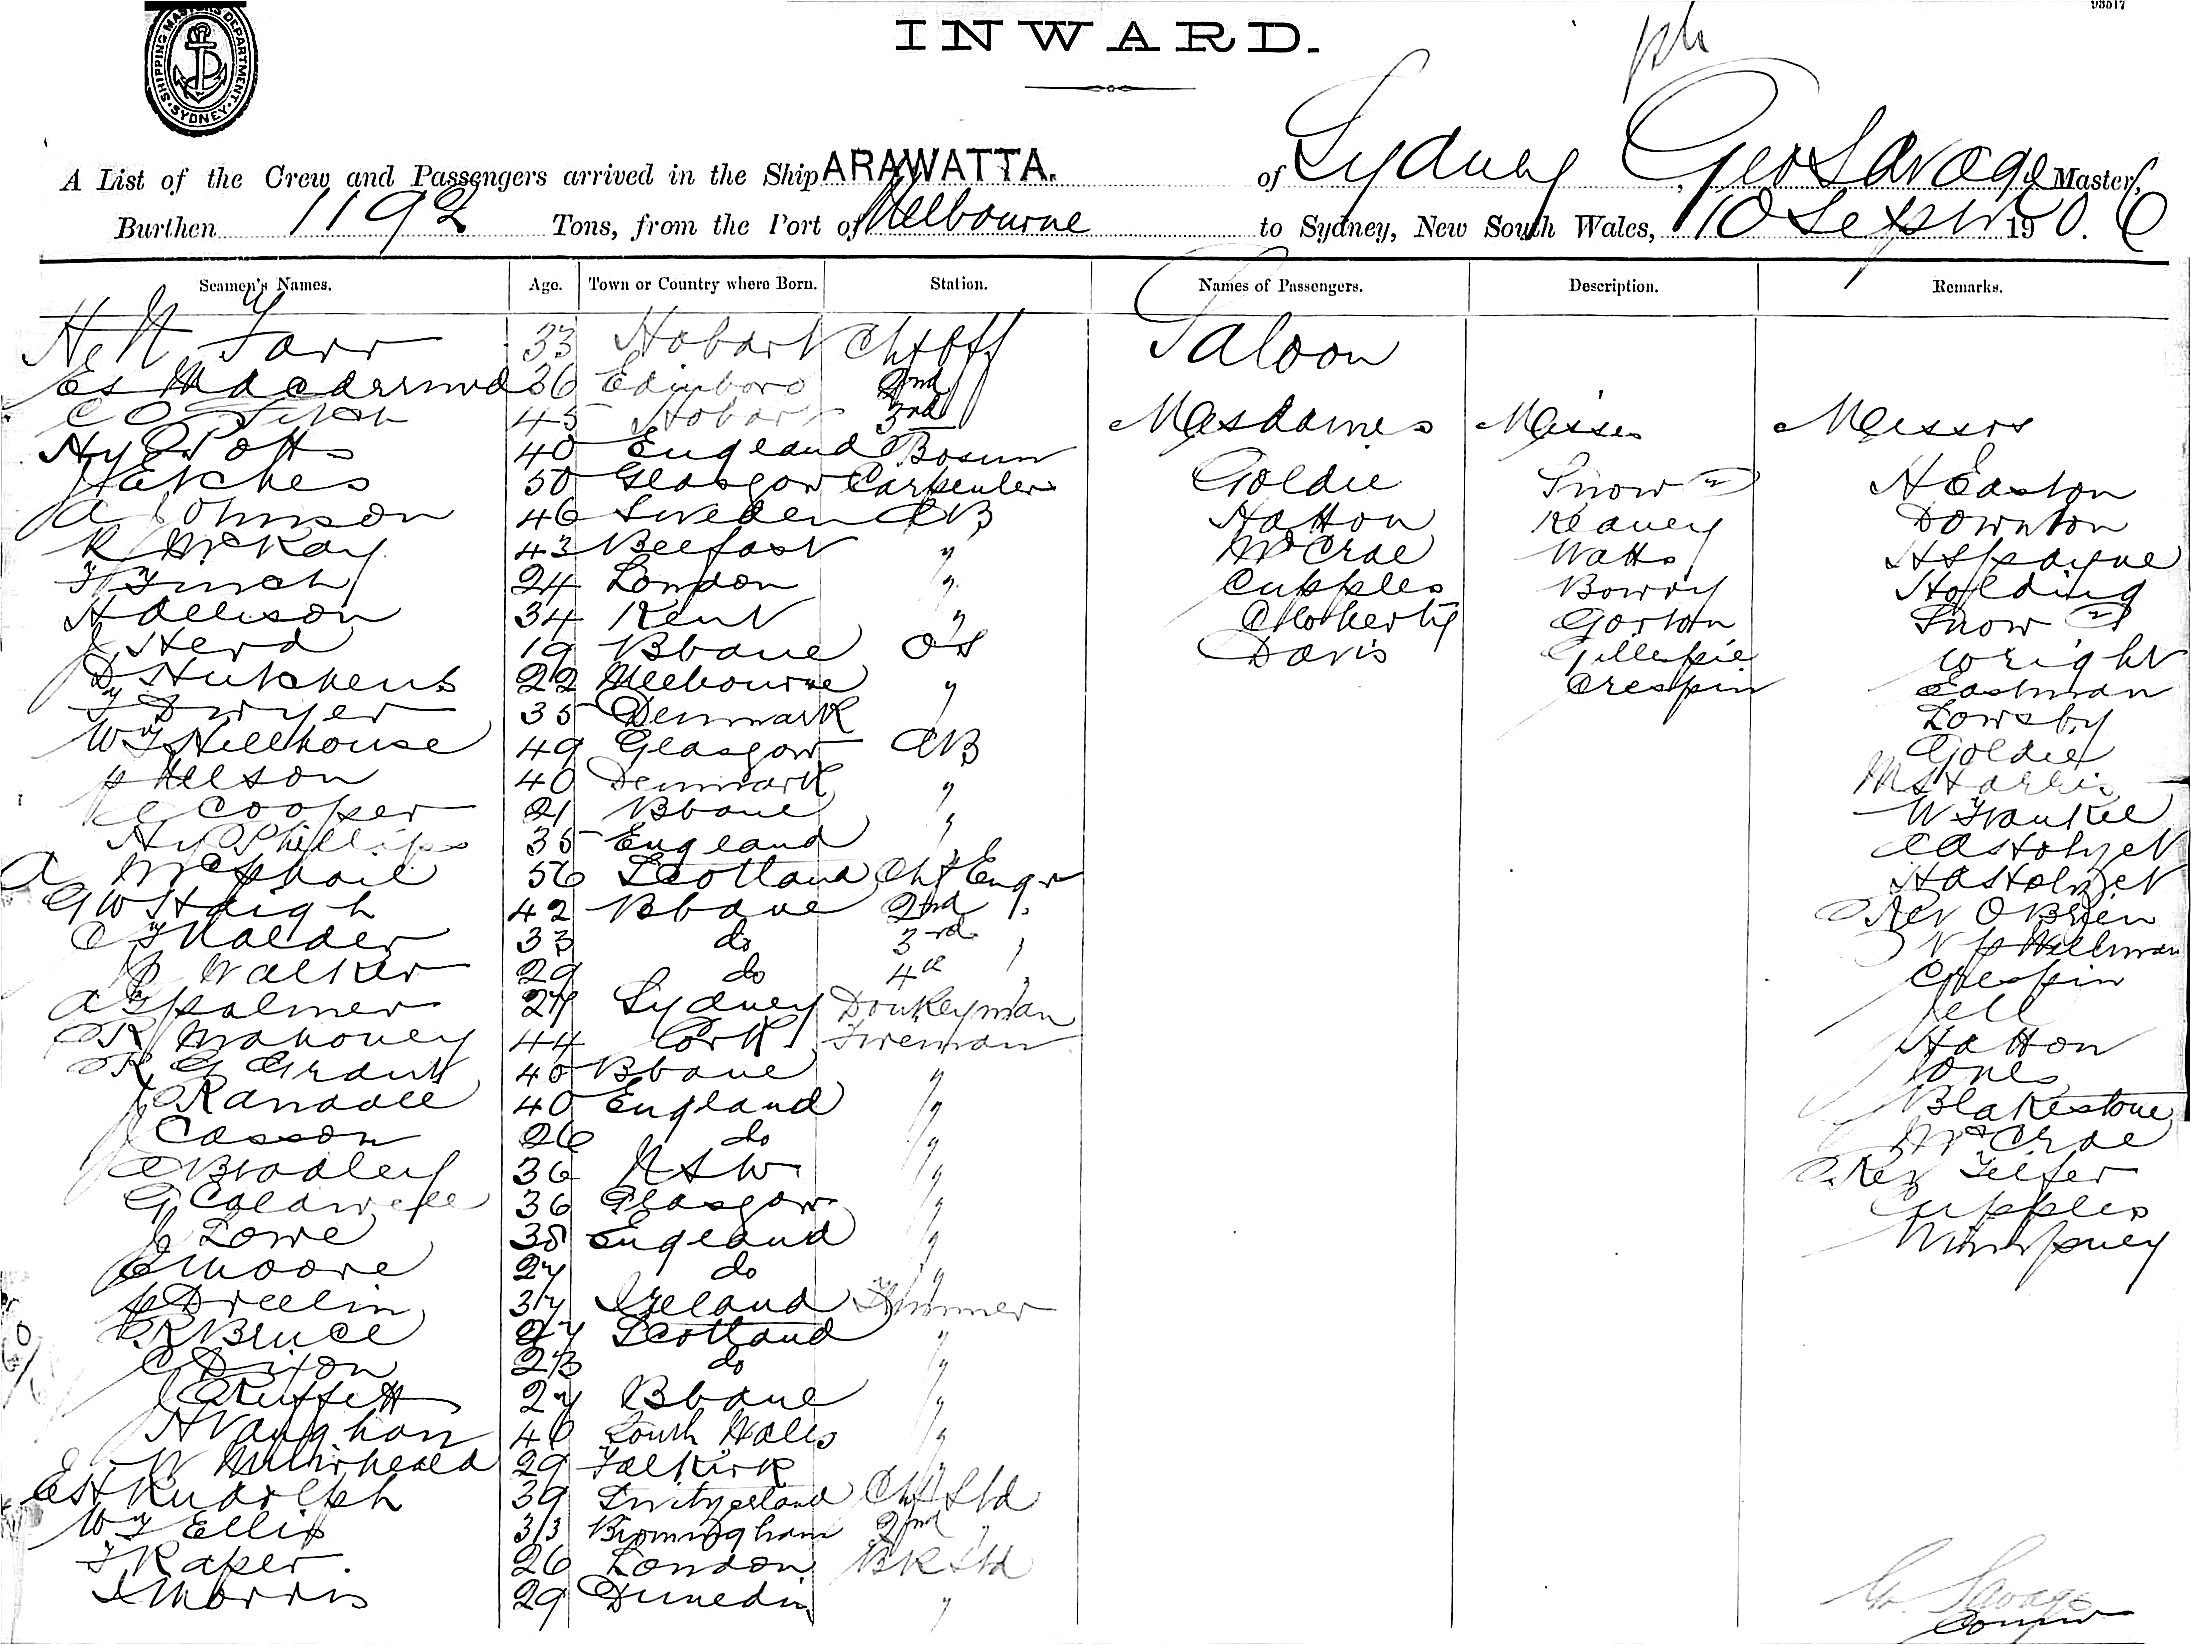 03517
INWARD.
SHIPPING MASTERS DEPARTMENT. SYDNEY.
A List of the Crew and Passengers arrived in the Ship ARAWATTA. of Sydney Geo Savage Master,
Burthen 1192 Tons, from the Port of Melbourne to Sydney, New South Wales, 10 Sept 1906
Seamen's Names. Age. Town or Country where Born. Station. Names of Passengers. Description. Remarks.
H W Tarr 33 Hobart Chf Off Saloon
36 Edinboro 2nd
45 Hobart 3rd Mesdames Misses Messrs
Hy Potts 40 England Bosun
50 Glasgow Carpenter Goldie Snow H Easton
A Johnson 46 Sweden AB Hatton Reavey Downton
R McKay 43 Belfast " McCrae Watts H S Payne
F Finch 24 London " Cupples Bowry Holding
H Allison 34 Kent " Gorton Snow
J Herd 19 Bbane OS Davis Gillespie Wright
D Hutchens 22 Melbourne " Crespin Eastman
T Dwyer 35 Denmark Lowsby
W F Hillhouse 49 Glasgow AB Goldie
P Nelson 40 Denmark " M S Harris
C Cooper 21 Bbane " W Frankel
Hy Phillips 35 England
A McPhail 56 Scotland Chf Engr
G W Haigh 42 Bbane 2nd " Rev O'Brien
33 do 3rd "
J Walker 29 do 4th " Crespin
A G Palmer 27 Sydney Donkeyman Jell
R Mahoney 44 Cork Fireman Hatton
R G Grant 40 Bbane " Jones
J Randall 40 England " Blakestone
J Casson 26 do " McCrae
A Bradley 36 NSW " Rev Telfer
G Caldwell 36 Glasgow " Cupples
J Lowe 38 England " Wimpney
E Moore 27 do "
P Dreelin 37 Ireland Trimmer
R Bruce 27 Scotland "
C Dixon 23 do "
J Ruffett 27 Bbane "
H Vaughan 40 South Wales "
W Muirhead 29 Falkirk "
E H Rudolph 39 Switzerland Chf Std
W F Ellis 33 Birmingham 2nd "
F Raper. 26 London BK Std
S Morris 29 Dunedin "
G. Savage